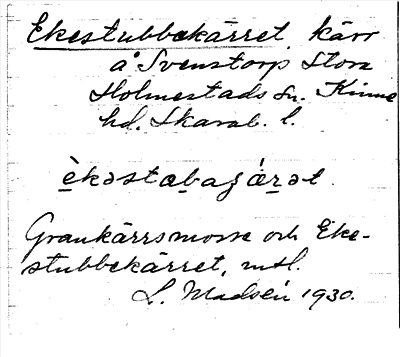 Ekestubbekärret, kärr
å Svenstorp Stora
Holmestads sn. Kinne
hd. Skarab. l.
èkəstəbaʒǽrət.
Grankärrsmosse och Eke-
stubbekärret, mtl.
L. Madsén 1930.